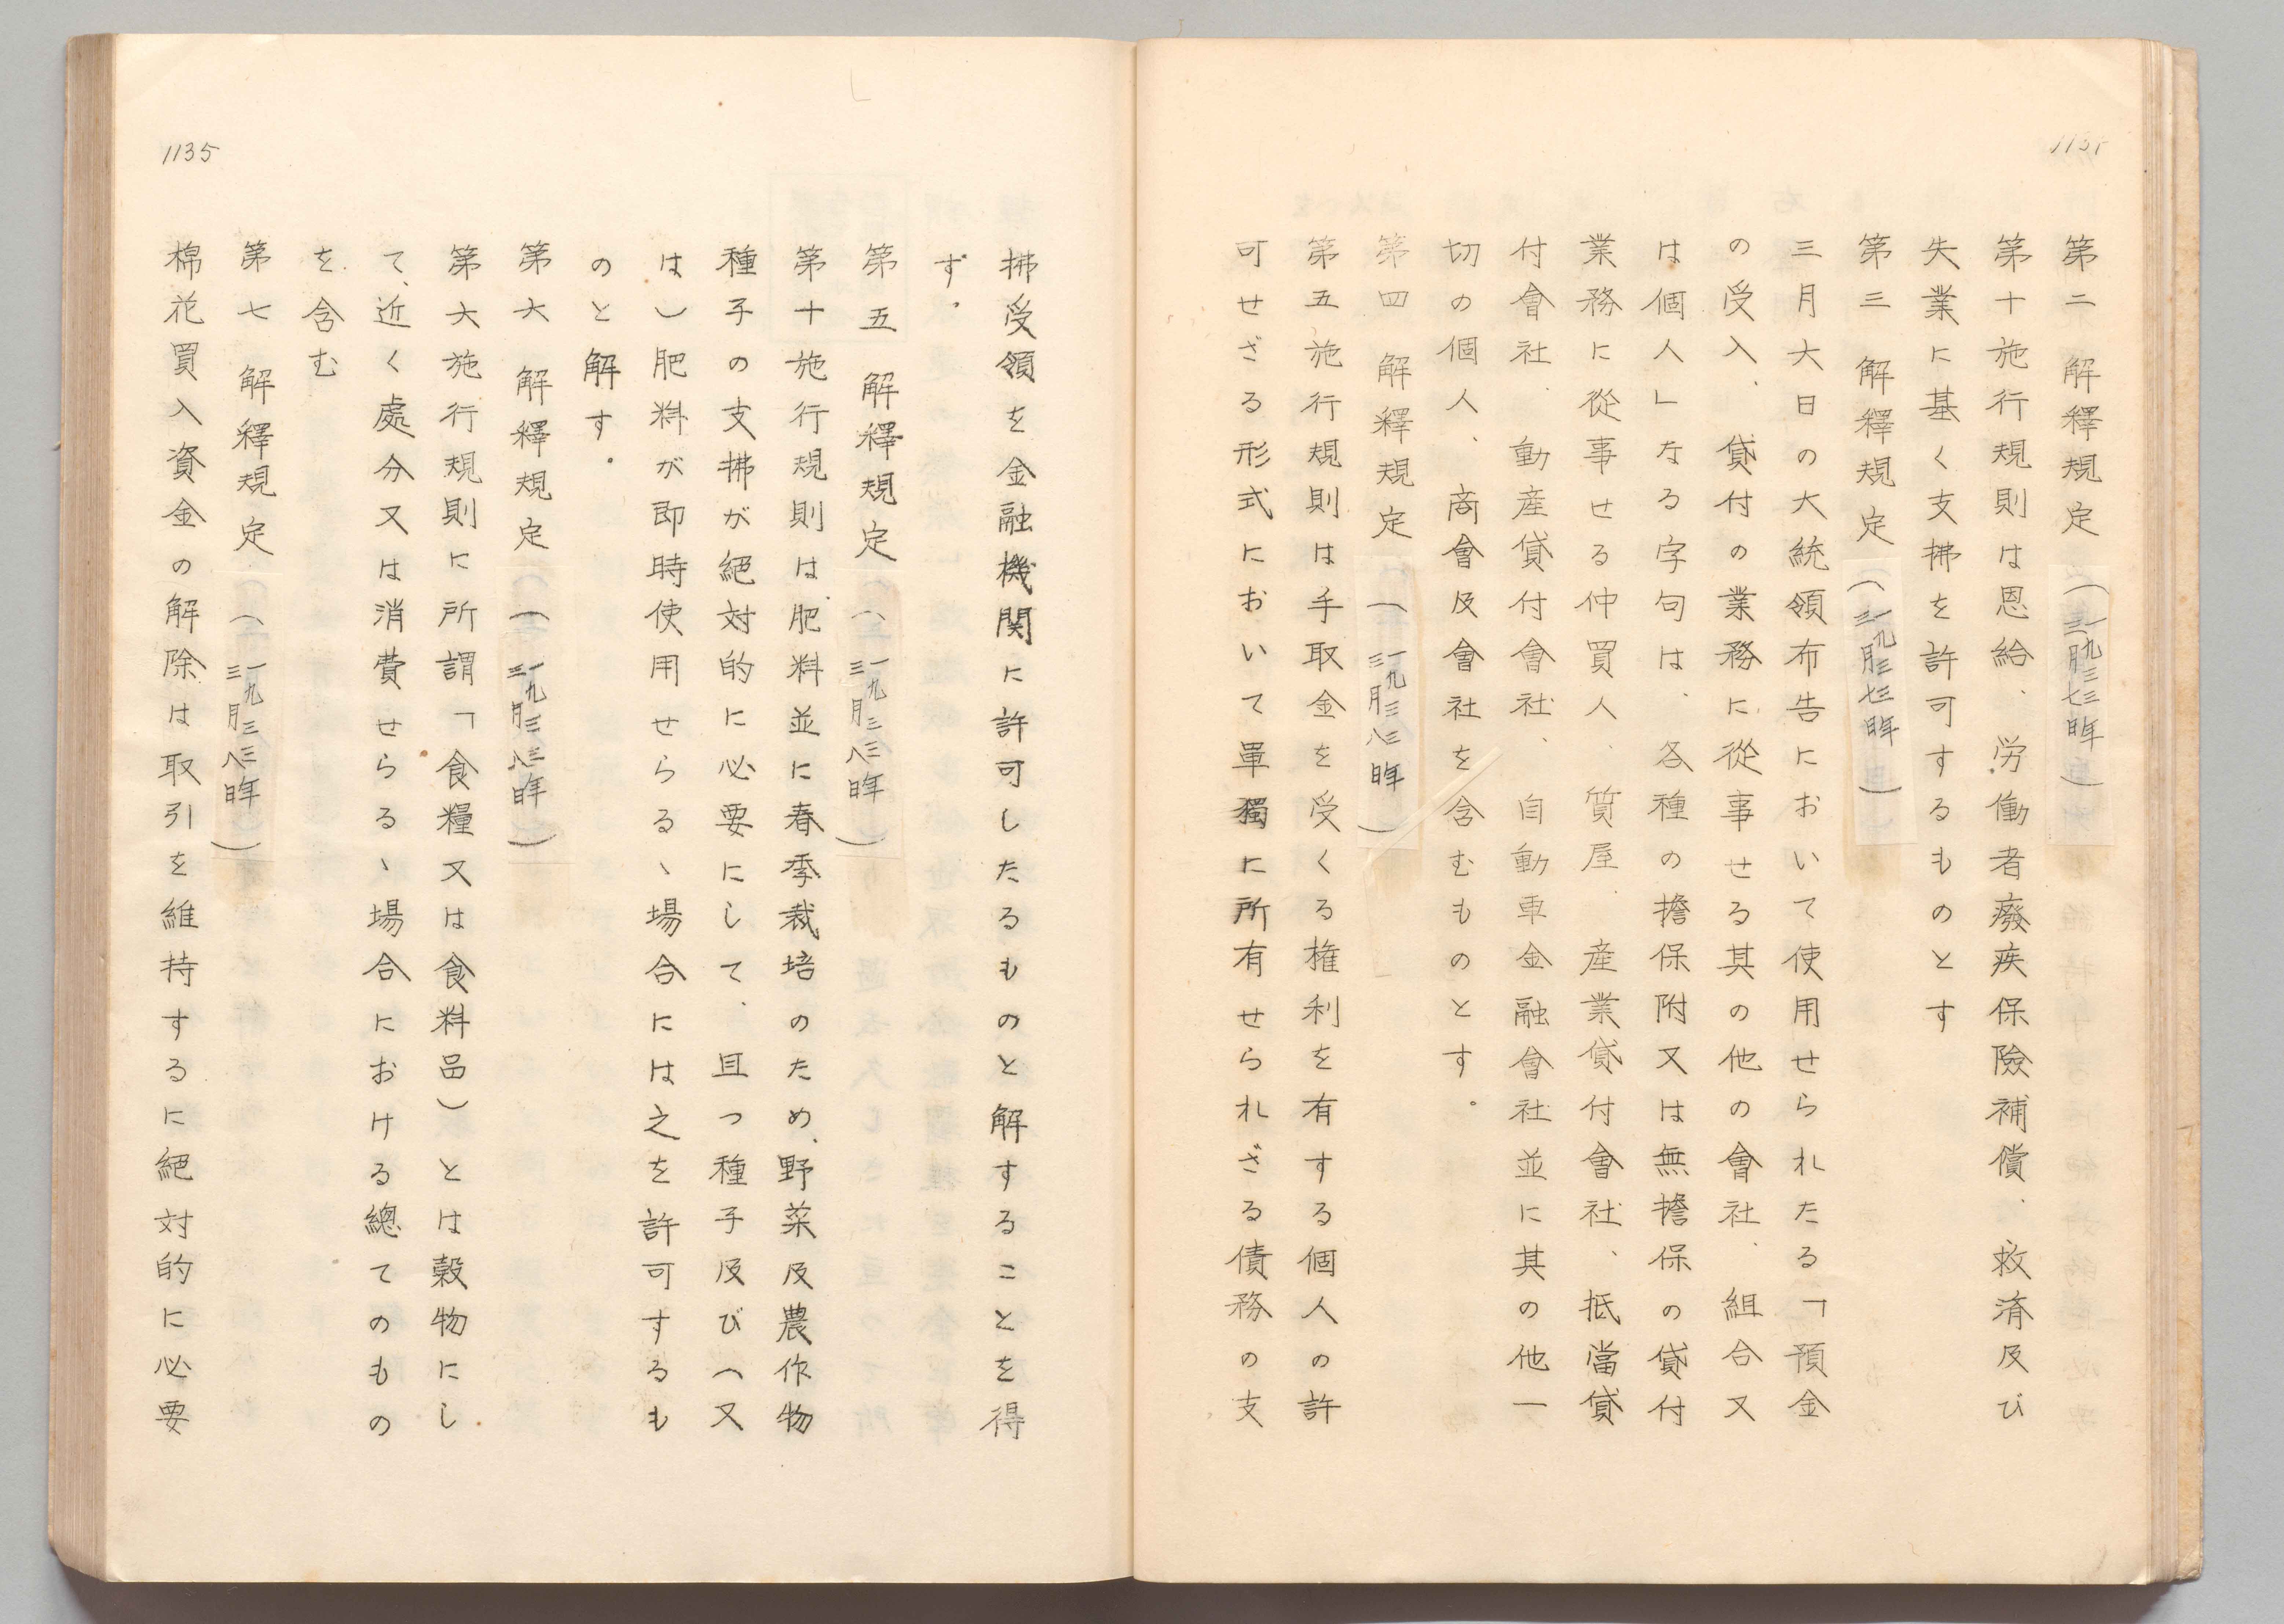 第二　解釋規定（一九三三年三月七日）
第十施行規則は恩給、労働者癈疾保險補償、救済及び
失業に基く支拂を許可するものとす
第三　解釋規定（一九三三年三月七日）
三月六日の大統領布告において使用せられたる「預金
の受入、貸付の業務に從事せる其の他の會社、組合又
は個人」なる字句は、各種の擔保附又は無擔保の貸付
業務に從事せる仲買人、質屋、産業貸付會社、抵當貸
付會社、動産貸付會社、自動車金融會社並に其の他一
切の個人、商會及會社を含むものとす。
第四　解釋規定（一九三三年三月八日）
第五施行規則は手取金を受くる権利を有する個人の許
可せざる形式において單獨に所有せられざる債務の支
1135
拂受領を金融機関に許可したるものと解することを得
ず。
第五　解釋規定（一九三三年三月八日）
第十施行規則は、肥料並に春季栽培のため、野菜及農作物
種子の支拂が絕対的に必要にして、且つ種子及び（又
は）肥料が即時使用せらるゝ場合には之を許可するも
のと解す。
第六　解釋規定（一九三三年三月八日）
第六施行規則に所謂「食糧又は食料品）とは穀物にし
て、近く處分又は消費せらるゝ場合における總てのもの
を含む
第七　解釋規定（一九三三年三月八日）
棉花買入資金の解除は取引を維持するに絕対的に必要
1135